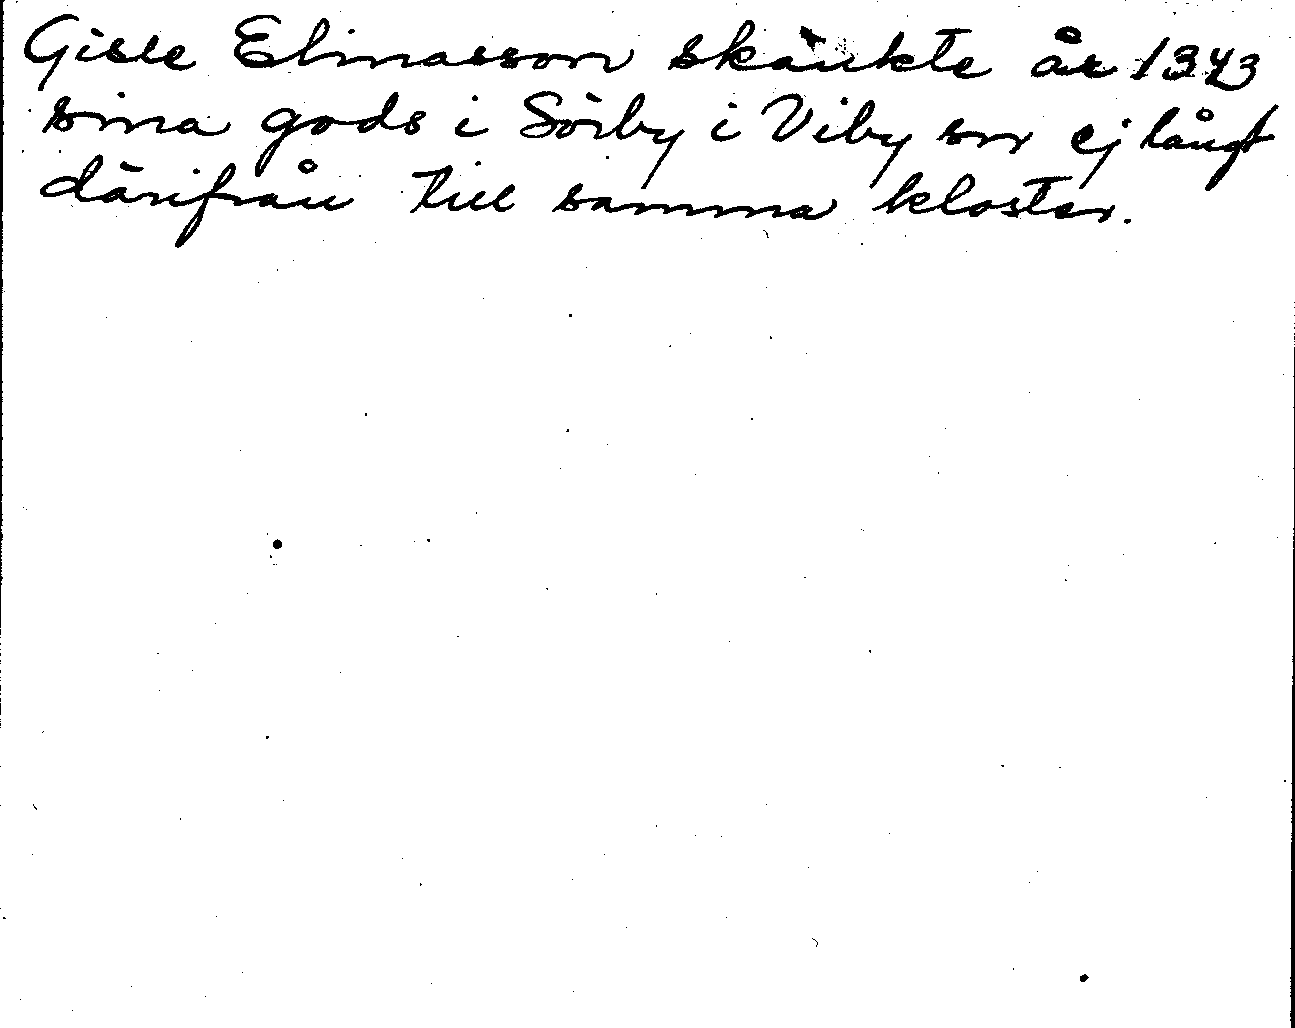 Gisle Elinasson skänkte år 1343
sina gods i Sörby i Viby sn ej långt
därifrån till samma kloster.